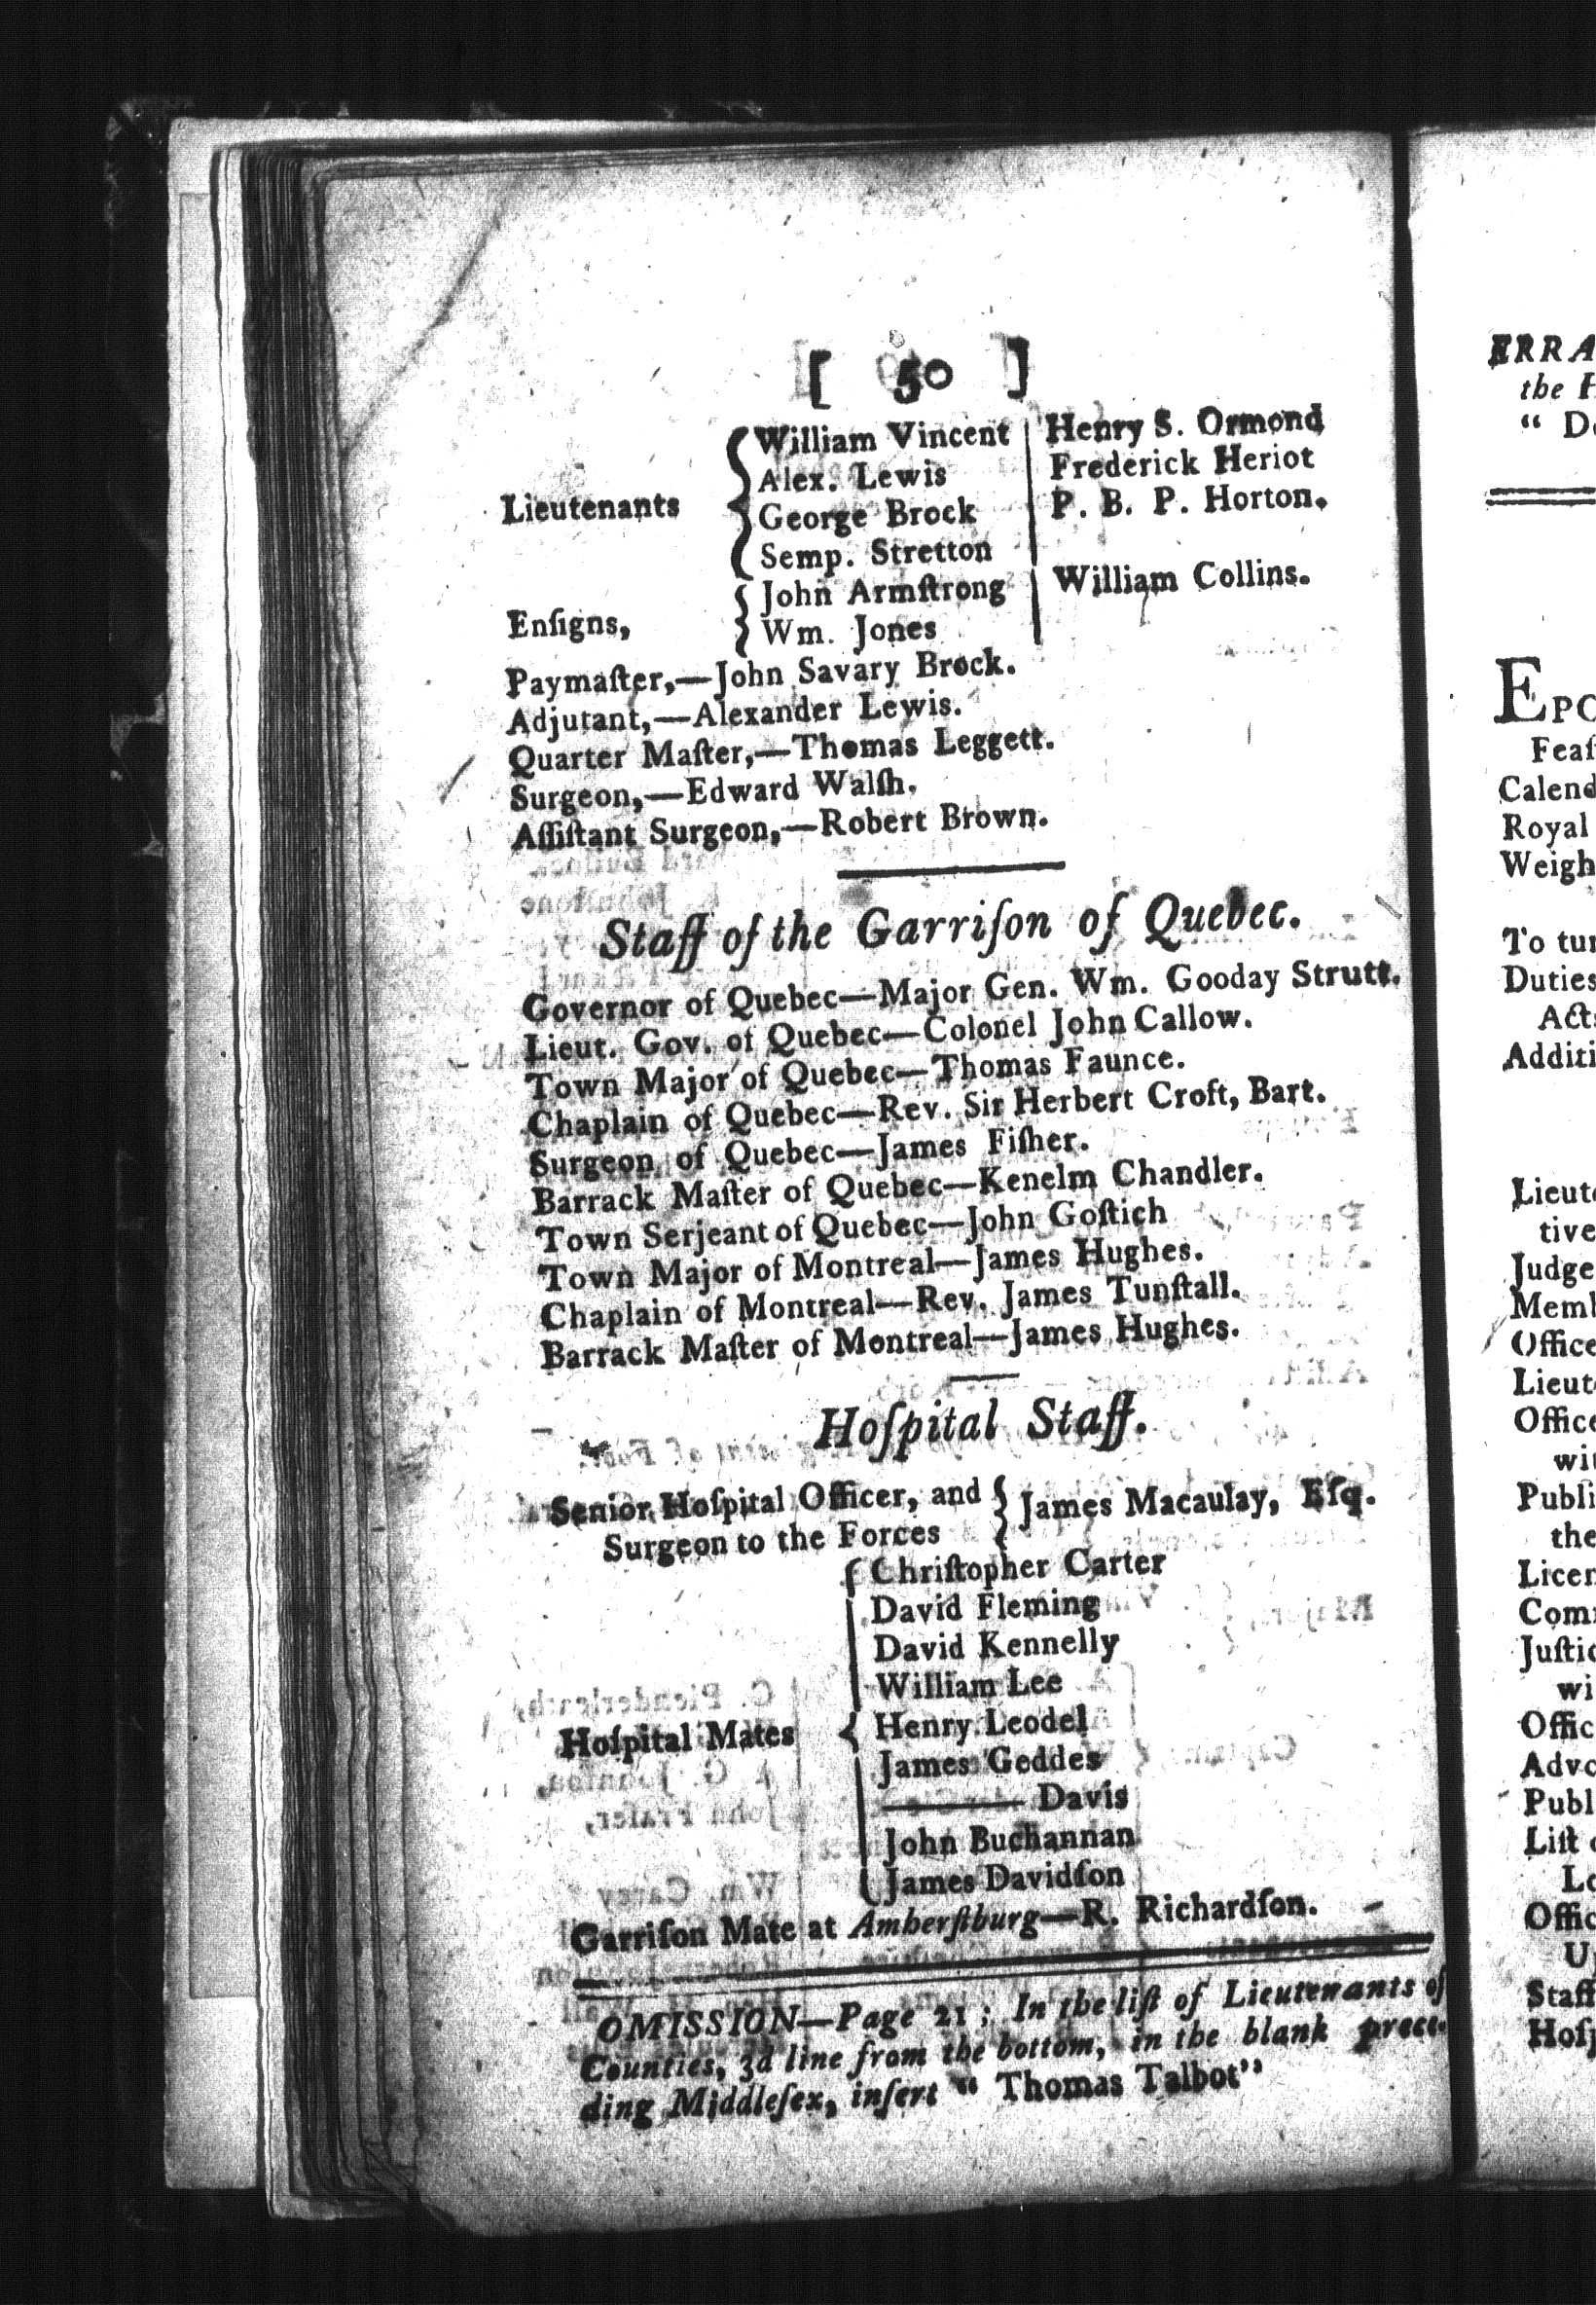 [ 50 ]
William Vincent | Henry S. Ormond
Alex. Lewis | Frederick Heriot
Lieutenants { George Brock | P. B. P. Horton.
Semp. Stretton
Enſigns, { John Armſtrong | William Collins.
Wm. Jones
Paymaſter,—John Savary Brock.
Adjutant,—Alexander Lewis.
Quarter Maſter,—Thomas Leggett.
Surgeon,—Edward Walſh.
Aſſiſtant Surgeon,—Robert Brown.
Staff of the Garriſon of Quebec.
Governor of Quebec—Major Gen. Wm. Gooday Strutt.
Lieut. Gov. of Quebec—Colonel John Callow.
Town Major of Quebec—Thomas Faunce.
Chaplain of Quebec—Rev. Sir Herbert Croft, Bart.
Surgeon of Quebec—James Fiſher.
Barrack Maſter of Quebec—Kenelm Chandler.
Town Serjeant of Quebec—John Goſtich
Town Major of Montreal—James Hughes.
Chaplain of Montreal—Rev. James Tunſtall.
Barrack Maſter of Montreal—James Hughes.
Hoſpital Staff.
Senior Hoſpital Officer, and } James Macaulay, Eſq.
Surgeon to the Forces
Chriſtopher Carter
David Fleming
David Kennelly
William Lee
Hoſpital Mates { Henry Leodel
James Geddes
——— Davis
John Buchannan
James Davidſon
Garriſon Mate at Amherſtburg—R. Richardſon.
OMISSION—Page 21; In the liſt of Lieutenants of
Counties, 3d line from the bottom, in the blank prece-
ding Middleſex, inſert "Thomas Talbot"
ERRA
the
" D
EPO
Feaſ
Calend
Royal
Weigh
To tur
Duties
Acts
Additi
Lieut
tive
Judge
Memb
Office
Lieut
Office
wit
Publi
the
Licen
Com
Juſtic
wi
Offic
Advo
Publ
Liſt
Lo
Offic
U
Staff
Hoſp